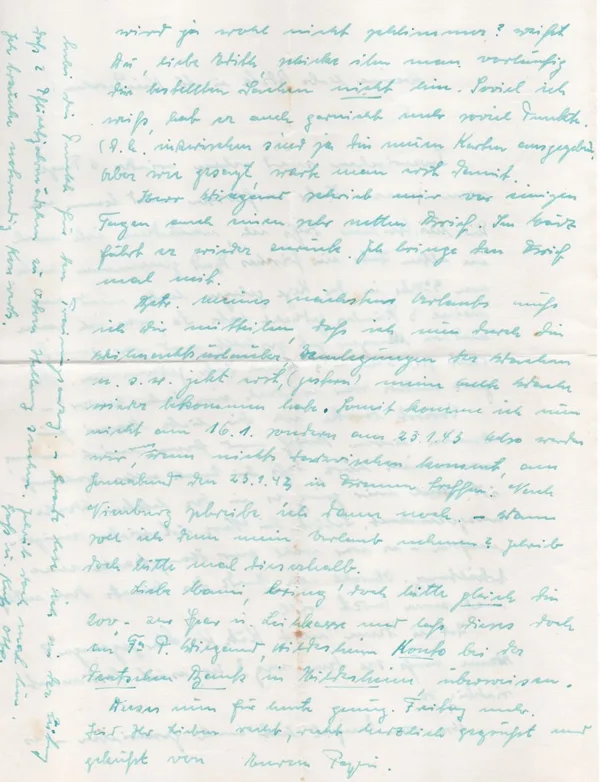 wird ja wohl nicht schlimmer? weißt
Du, liebe Edith schicke ihm man vorläufig
die bestellten Sachen nicht hin. Soviel ich
weiß, hat er auch garnicht mehr soviel Punkte.
(d.h. inzwischen sind ja die neuen Karten ausgegeben
Aber wie gesagt, warte man noch damit.
Herr Wiegand schrieb mir vor einigen
Tagen auch einen sehr netten Brief. Im März
fährt er wieder zurück. Ich bringe den Brief
mal mit.
Betr. meines nächsten Urlaubs muß
ich Dir mitteilen, daß ich nun durch die
Weihnachtsurlauber, der Wachen
u. s. w. jetzt erst (gestern) meine Wache
wieder bekommen habe. Somit komme ich nun
nicht am 16.1. sondern am 23.1.43 Also werden
wir, wenn nichts dazwischen kommt, am
Sonnabend den 23.1.43 in treffen. Nach
Nienburg schreibe ich dann noch. – Wann
soll ich denn mein Urlaub nehmen? Schreib
doch bitte mal dieserhalb.
Liebe Mami, bring' doch bitte gleich die
200,- zur Spar u. Leihkasse und laß dieses doch
an Wiegand, Hildesheim Konto bei der
Deutschen Bank in Hildesheim überweisen.
Dieses nun für heute genug. Freitag mehr.
Ihr Lieben recht, recht herzlich gegrüßt und
geküßt von Eurem Pappi.
habe die Punkte für den Trainingsanzug –
daß 2
Ich brauche notwendig
Gruß u. Kuß